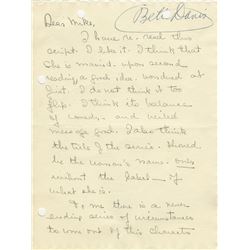 Bette Davis
Dear Mike,
I have re-read this
script. I like it. I think that
she is married, upon second
reading a good idea. Wondered at
first. I do not think it too
flip. I think its balance
of comedy - and
message good. I also think
the title of the series - should
be the woman's name. only
without the label - of
what she is.
To me there is a never
ending series of circumstances
to come out of this character